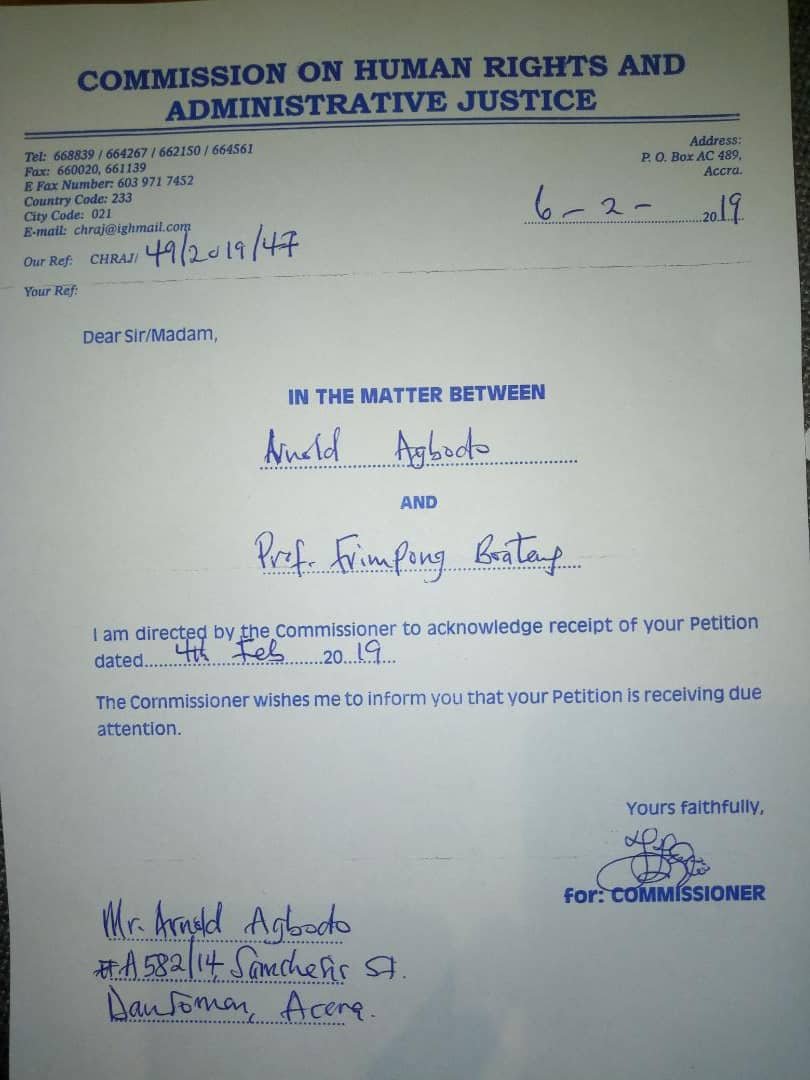 COMMISSION ON HUMAN RIGHTS AND
ADMINISTRATIVE JUSTICE
Tel: 668839 / 664267 / 662150 / 664561
Fax: 660020, 661139
E Fax Number: 603 971 7452
Country Code: 233
City Code: 021
E-mail: chraj@ighmail.com
Address:
P. O. Box AC 489,
Accra.
6-2-2019
Our Ref: CHRAJ/ 49/2019/47
Your Ref:
Dear Sir/Madam,
IN THE MATTER BETWEEN
Arnold Agbodo
AND
Prof. Frimpong Boateng
I am directed by the Commissioner to acknowledge receipt of your Petition
dated......4th Feb......20..19...
The Commissioner wishes me to inform you that your Petition is receiving due
attention.
Yours faithfully,
for: COMMISSIONER
Mr. Arnold Agbodo
#A582/14 St.
Dansoman, Accra.